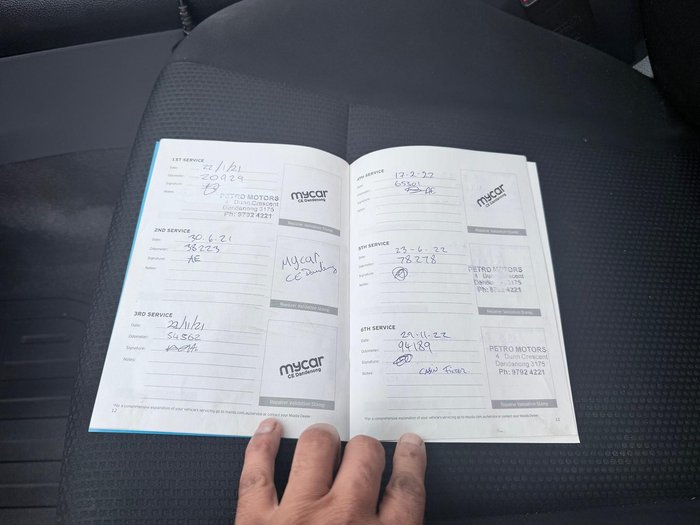 1ST SERVICE
Date: 22/1/21
Odometer: 20929
Signature:
Notes:
PETRO MOTORS
4 Dunn Crescent
Dandenong 3175
Ph: 9792 4221
mycar
CE Dandenong
Repairer Validation Stamp
2ND SERVICE
Date: 30.6.21
Odometer: 38223
Signature: AE
Notes:
Mycar
CE Dandenong
Repairer Validation Stamp
3RD SERVICE
Date: 22/11/21
Odometer: 54562
Signature:
Notes:
mycar
CE Dandenong
Repairer Validation Stamp
*For a comprehensive explanation of your vehicle's servicing go to mazda.com.au/service or contact your Mazda Dealer
12
4TH SERVICE
Date: 17-2-22
Odometer: 65301
Signature: AE
Notes:
mycar
CE Dandenong
Repairer Validation Stamp
5TH SERVICE
Date: 23-6-22
Odometer: 78278
Signature:
Notes:
PETRO MOTORS
4 Dunn Crescent
Dandenong 3175
Ph: 9792 4221
Repairer Validation Stamp
6TH SERVICE
Date: 29-11-22
Odometer: 94189
Signature:
Notes: CABIN FILTER
PETRO MOTORS
4 Dunn Crescent
Dandenong 3175
Ph: 9792 4221
Repairer Validation Stamp
*For a comprehensive explanation of your vehicle's servicing go to mazda.com.au/service or contact your Mazda Dealer